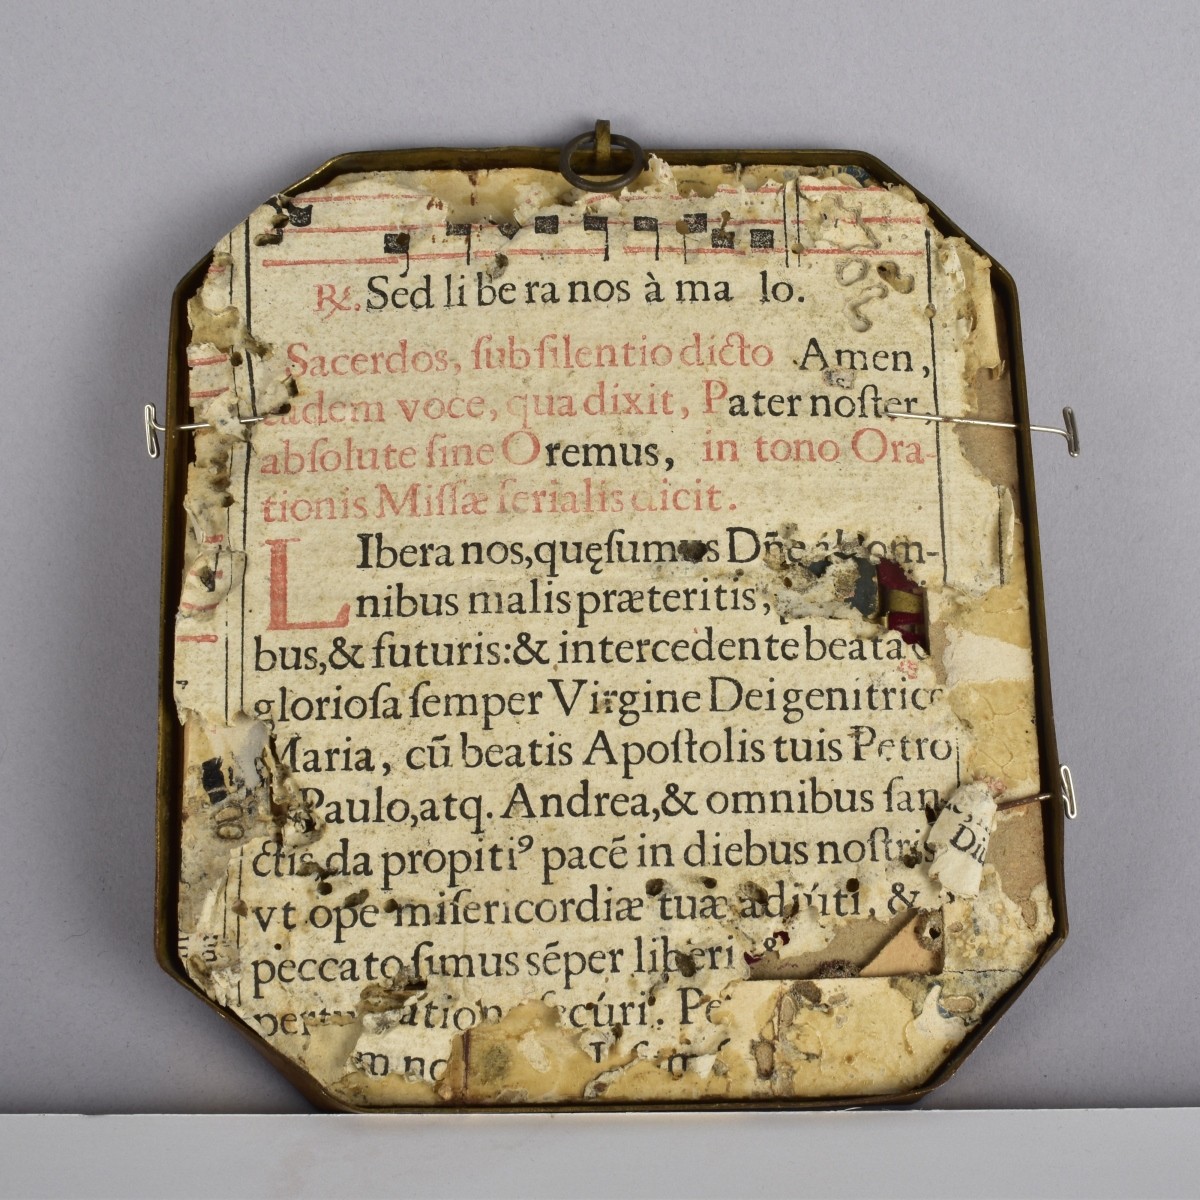 ℟. Sed li be ra nos à ma lo.
Sacerdos, sub silentio dicto Amen,
eadem voce, qua dixit, Pater noster,
absolute sine Oremus, in tono Ora-
tionis Missæ ferialis dicit.
LIbera nos, quęsumus Dñe om-
nibus malis præteritis,
bus, & futuris: & intercedente beata
gloriosa semper Virgine Dei genitrice
Maria, cū beatis Apostolis tuis Petro
Paulo, atq. Andrea, & omnibus san-
ctis, da propitiꝰ pacē in diebus nostris
vt ope misericordiæ tuæ adiúti, &
peccato simus sēper liberi
secúri. Pe